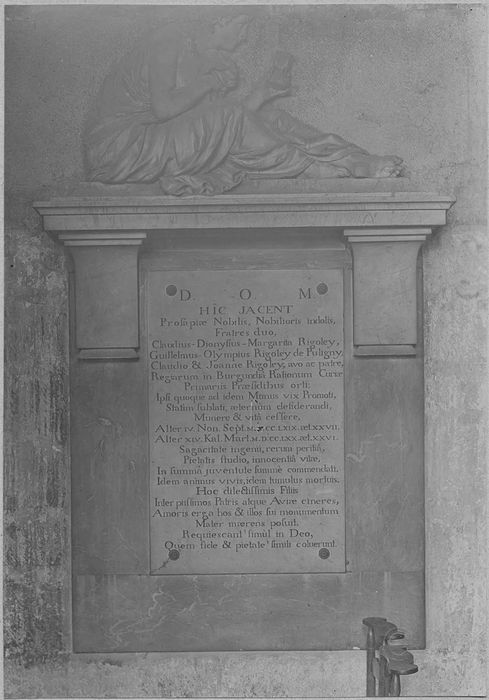 D. O. M.
HIC JACENT
Prosapiæ Nobilis, Nobilioris indolis,
Fratres duo,
Claudius-Dionysius-Margarita Rigoley,
Guillelmus-Olympius Rigoley de Puligny,
Claudio & Joanne Rigoley, avo ac patre,
Regiarum in Burgundiâ Rationum Curiæ
Primariis Præsidibus orti:
Ipsi quoque ad idem Munus vix Promoti,
Statim sublati, æternùm desiderandi,
Munere & vitâ cessere,
Alter IV. Non. Sept. M.D.CC.LXIX. æt. XXVII.
Alter XIV. Kal. Mart. M.D.CC.LXX. æt. XXVI.
Sagacitate ingenii, rerum peritiâ,
Pietatis studio, innocentiâ vitæ,
In summâ juventute summè commendati.
Idem animus vivis, idem tumulus mortuis.
Hoc dilectissimis Filiis
Inter piissimos Patris atque Aviæ cineres,
Amoris erga hos & illos sui monumentum
Mater mærens posuit.
Requiescant simul in Deo,
Quem fide & pietate simili coluerunt.